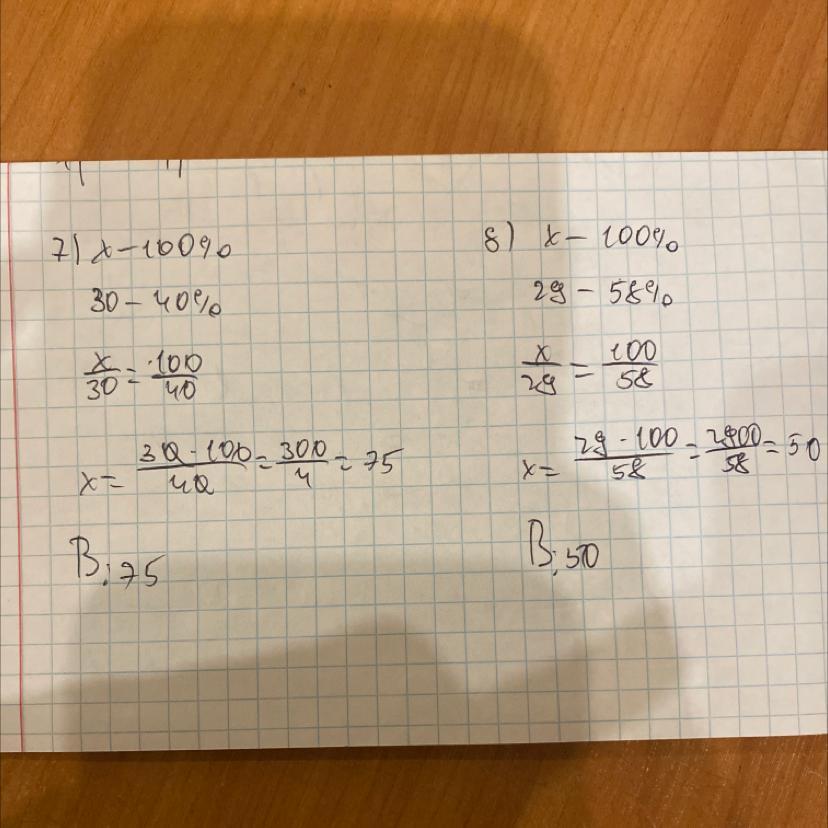 7) x – 100%
30 – 40%
x/30 = 100/40
x = 30 · 100/40 = 300/4 = 75
В: 75
8) x – 100%
29 – 58%
x/29 = 100/58
x = 29 · 100/58 = 2900/58 = 50
В: 50